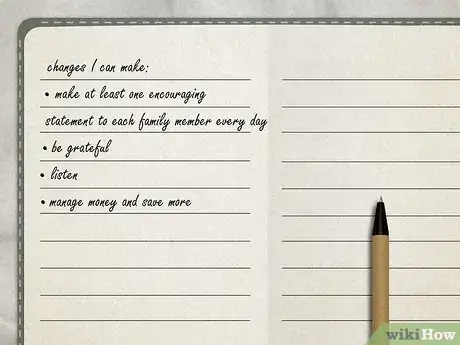 changes I can make:
• make at least one encouraging
statement to each family member every day
• be grateful
• listen
• manage money and save more
wikiHow